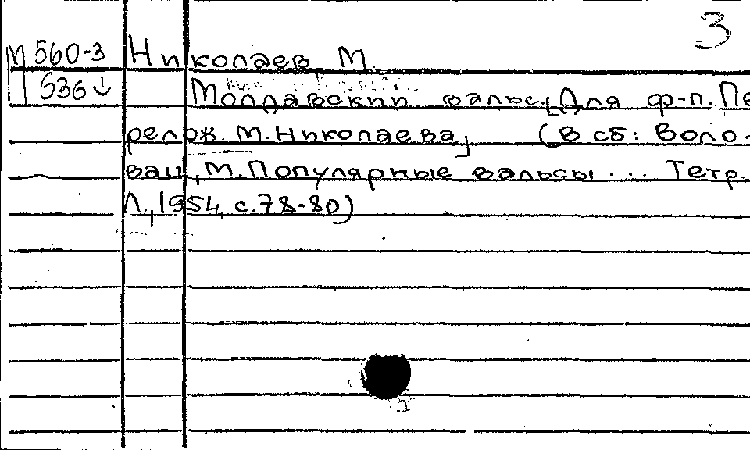 3
М 560-3 Николаев, М.
536↓ Молдавский вальс [Для ф-п. Пе
релож. М. Николаева] (В сб: Воло-
ван, М. Популярные вальсы... Тетр.
Л., 1954, с. 78-80)